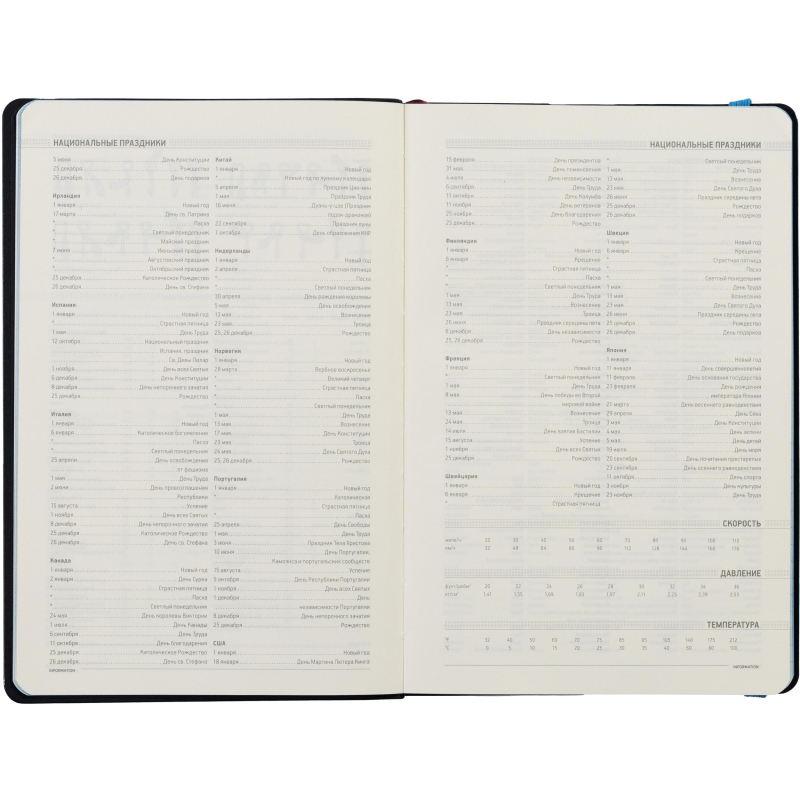 НАЦИОНАЛЬНЫЕ ПРАЗДНИКИ
5 июня День Конституции
25 декабря Рождество
26 декабря День подарков
Ирландия
1 января Новый год
17 марта День св. Патрика
* Пасха
* Светлый понедельник
* Майский праздник
1 июня Июньский праздник
* Августовский праздник
* Октябрьский праздник
25 декабря Католическое Рождество
26 декабря День св. Стефана
Испания
1 января Новый год
* Страстная пятница
1 мая День Труда
12 октября Национальный праздник
Испания, праздник
Св. Девы Пилар
1 ноября День всех Святых
6 декабря День Конституции
8 декабря День непорочного зачатия
25 декабря Рождество
Италия
1 января Новый год
6 января Католическое богоявление
* Пасха
* Светлый понедельник
25 апреля День освобождения
от фашизма
1 мая День Труда
2 июня День провозглашения
Республики
15 августа Успение
1 ноября День всех Святых
8 декабря День непорочного зачатия
25 декабря Католическое Рождество
26 декабря День св. Стефана
Канада
1 января Новый год
2 января День Сурка
* Страстная пятница
* Пасха
* Светлый понедельник
24 мая День королевы Виктории
1 июля День Канады
6 сентября День Труда
11 октября День благодарения
25 декабря Католическое Рождество
26 декабря День св. Стефана
INFORMATION
Китай
1 января Новый год
* Новый год по лунному календарю
5 апреля Праздник Цин-мин
1 мая Праздник Труда
16 июня Дуань-у-цзе (Праздник
лодок-драконов)
22 сентября Праздник луны
1 октября День образования КНР
Нидерланды
1 января Новый год
2 апреля Страстная пятница
* Пасха
* Светлый понедельник
30 апреля День рождения королевы
5 мая День освобождения
12 мая Вознесение
23 мая Троица
25, 26 декабря Рождество
Норвегия
1 января Новый год
28 марта Вербное воскресенье
* Великий четверг
* Страстная пятница
* Пасха
* Светлый понедельник
1 мая День Труда
13 мая Вознесение
17 мая День Конституции
23 мая Троица
24 мая День Святого Духа
25, 26 декабря Рождество
Португалия
1 января Новый год
* Католическая
Страстная пятница
* Пасха
25 апреля День Свободы
1 мая День Труда
3 июня Праздник Тела Христова
10 июня День Португалии,
Камоэнса и португальских сообществ
15 августа Успение
5 октября День Республики Португалии
1 ноября День всех Святых
1 декабря День
независимости Португалии
8 декабря День непорочного зачатия
25 декабря Рождество
США
1 января Новый год
18 января День Мартина Лютера Кинга
НАЦИОНАЛЬНЫЕ ПРАЗДНИКИ
15 февраля День президентов
31 мая День поминовения
4 июля День независимости
6 сентября День Труда
11 октября День Колумба
11 ноября День ветеранов
25 ноября День благодарения
25 декабря Рождество
Финляндия
1 января Новый год
6 января Крещение
* Страстная пятница
* Пасха
* Светлый понедельник
1 мая День Труда
13 мая Вознесение
23 мая Троица
26 июня Праздник середины лета
6 декабря День независимости
25, 26 декабря Рождество
Франция
1 января Новый год
* Светлый понедельник
1 мая День Труда
8 мая День победы во Второй
мировой войне
13 мая Вознесение
24 мая Троица
14 июля День взятия Бастилии
15 августа Успение
1 ноября День всех Святых
25 декабря Рождество
Швейцария
1 января Новый год
6 января Крещение
* Страстная пятница
* Светлый понедельник
1 мая День Труда
13 мая Вознесение
23 мая День Святого Духа
26 июня Праздник середины лета
25 декабря Рождество
26 декабря День подарков
Швеция
1 января Новый год
6 января Крещение
* Страстная пятница
* Пасха
* Светлый понедельник
1 мая День Труда
13 мая Вознесение
23 мая День Святого Духа
26 июня Праздник середины лета
25 декабря Рождество
26 декабря День подарков
Япония
1 января Новый год
11 января День совершеннолетия
11 февраля День основания государства
23 февраля День рождения
императора Японии
21 марта День весеннего равноденствия
29 апреля День Сёва
3 мая День Конституции
4 мая День зелени
5 мая День детей
19 июля День моря
20 сентября День почитания престарелых
23 сентября День осеннего равноденствия
11 октября День спорта
3 ноября День культуры
23 ноября День Труда
СКОРОСТЬ
миль/ч 20 30 40 50 60 70 80 90 100 110
км/ч 32 48 64 80 96 112 128 144 160 176
ДАВЛЕНИЕ
20 22 24 26 28 30 32 34 36
1,41 1,55 1,69 1,83 1,97 2,11 2,25 2,39 2,53
ТЕМПЕРАТУРА
°F 32 40 50 60 70 75 85 95 105 140 175 212
°C 0 5 10 15 20 25 30 35 40 60 80 100
INFORMATION